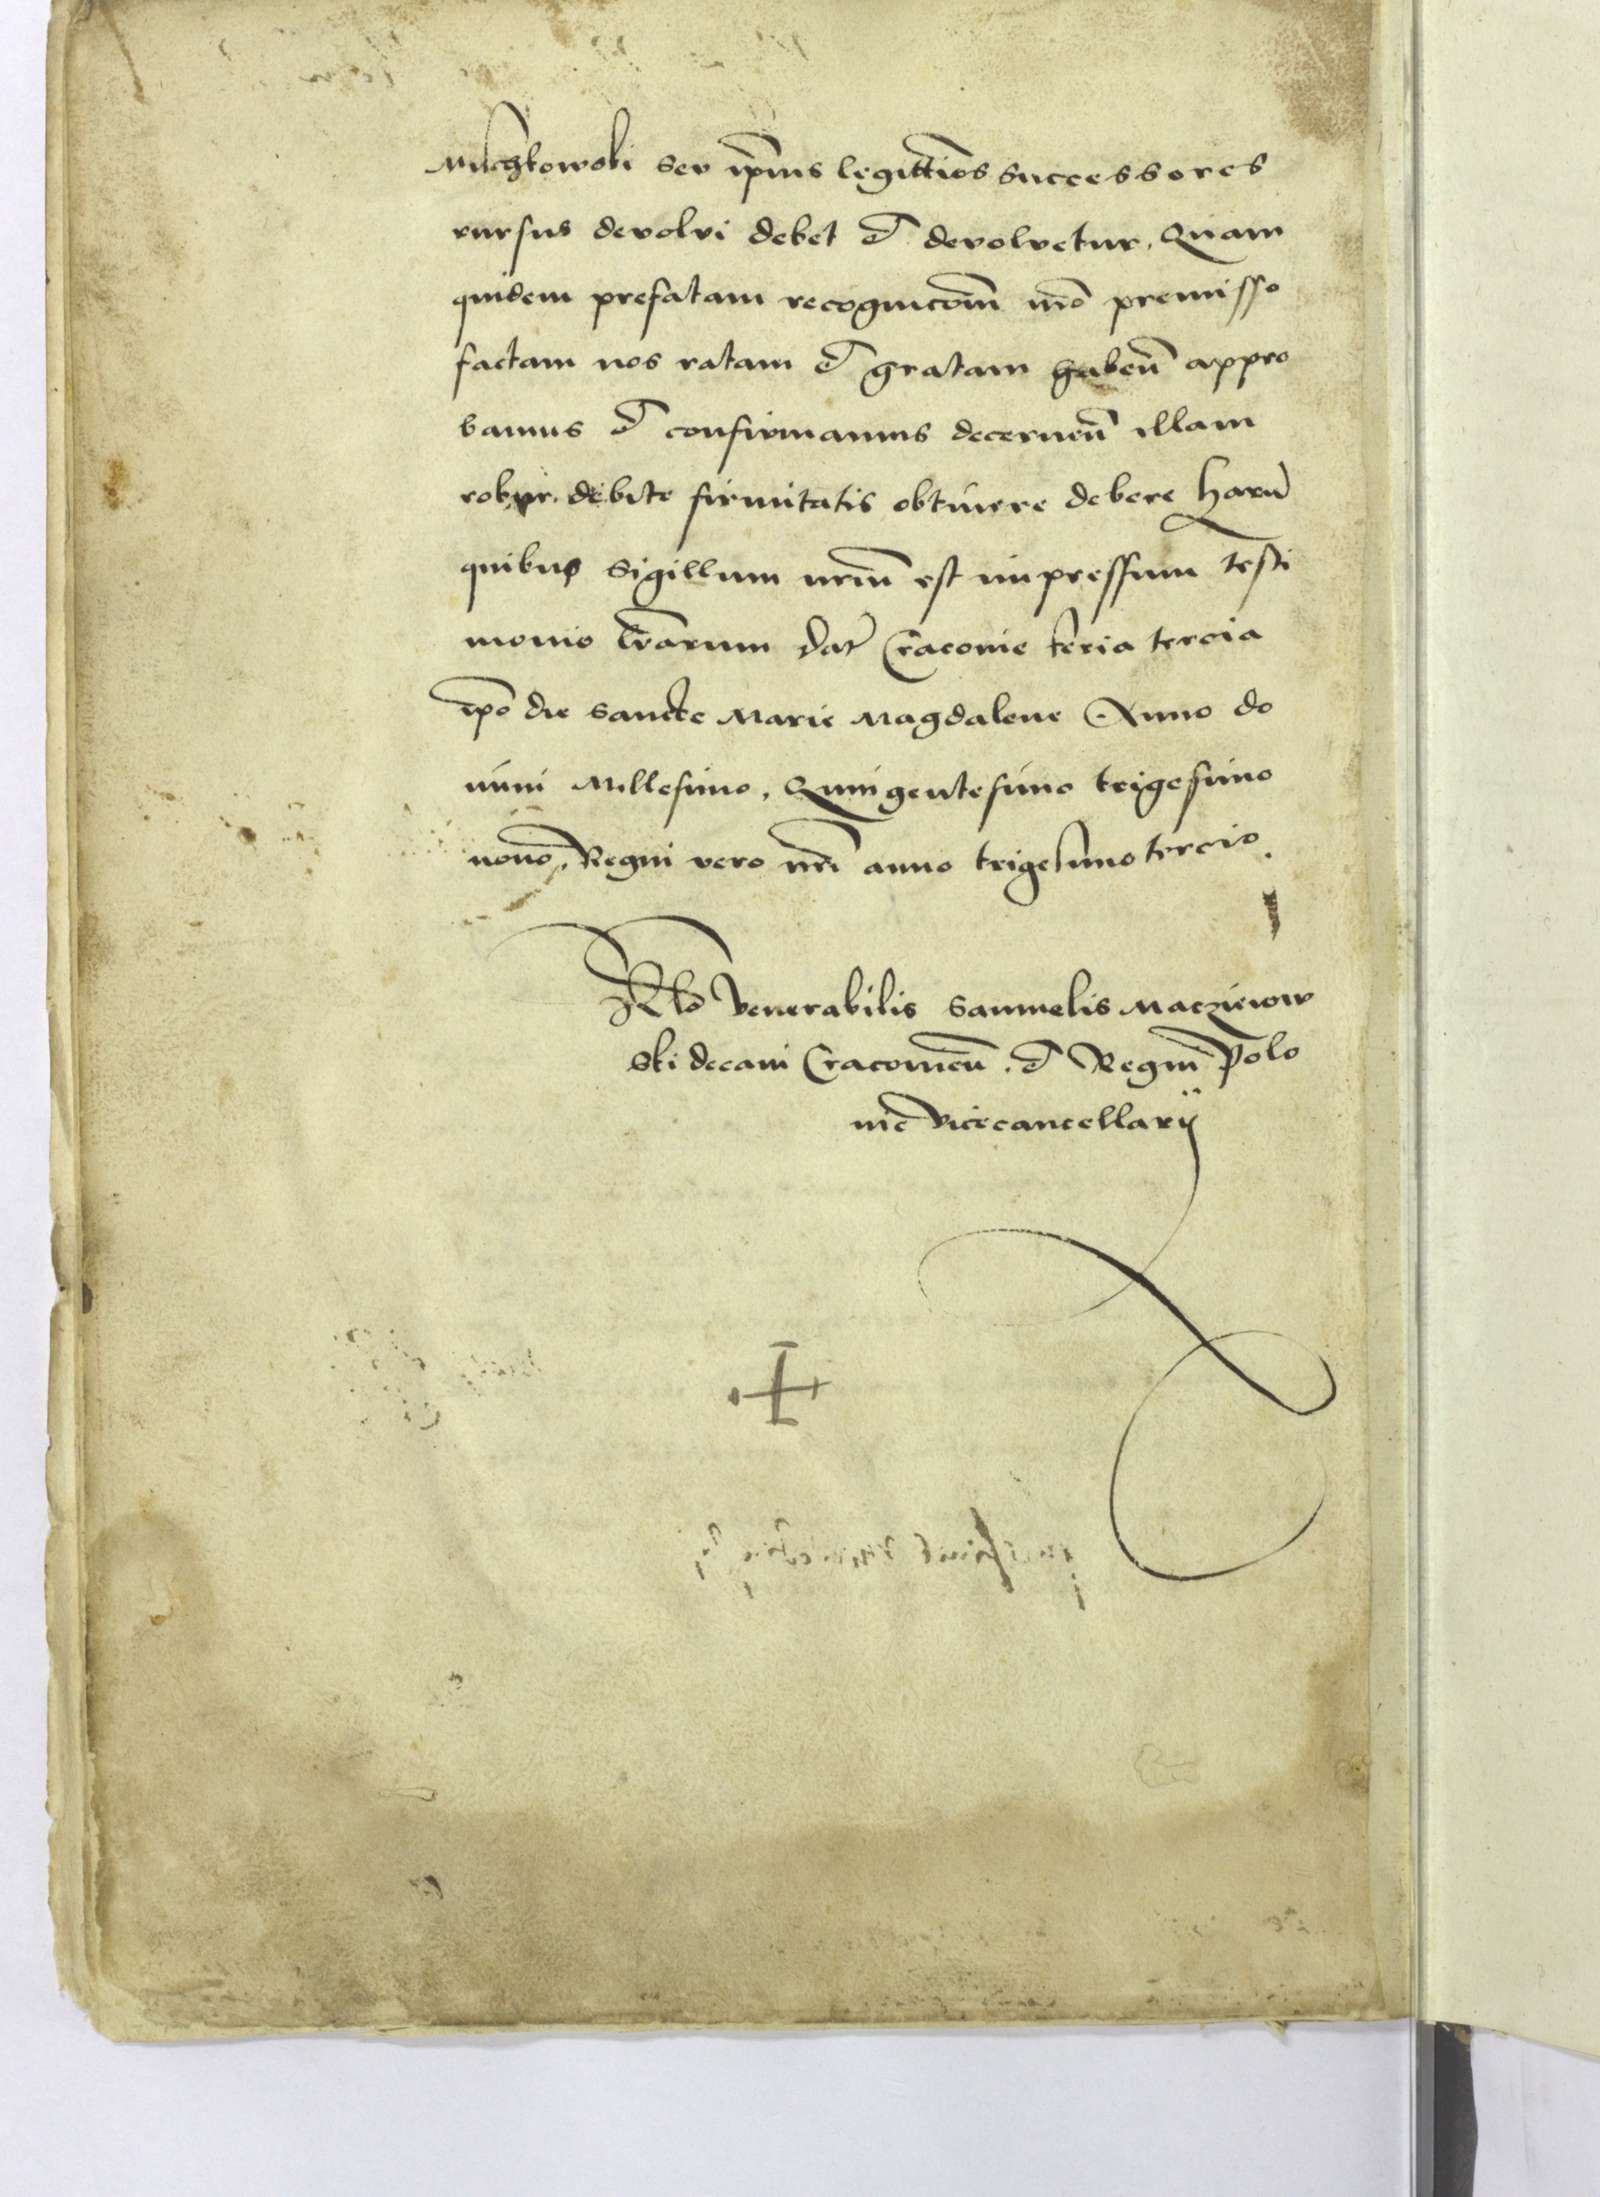 Muchkowski seu ip̄ius legitti͞os successores
rursus devolvi debet et devolvetur. Quam
quidem prefatam recognico͞m mo͞ premisso
factam nos ratam et gratam haben̄ appro
bamus et confirmamus decernen̄ illam
robur debite firmitatis obtinere debere Harū
quibus sigillum nrūm est impressum testi
monio lr̄arum Dat Cracovie feria tercia
ip̄o die Sancte Marie Magdalene Anno do
mini Millesimo, Quingentesimo trigesimo
nono, Regni vero nr̄i anno trigesimo tercio.
Rlo Venerabilis Samuelis Maczieiow
ski decani Cracovien̄. et Regni Polo
nie Vicecancellarij